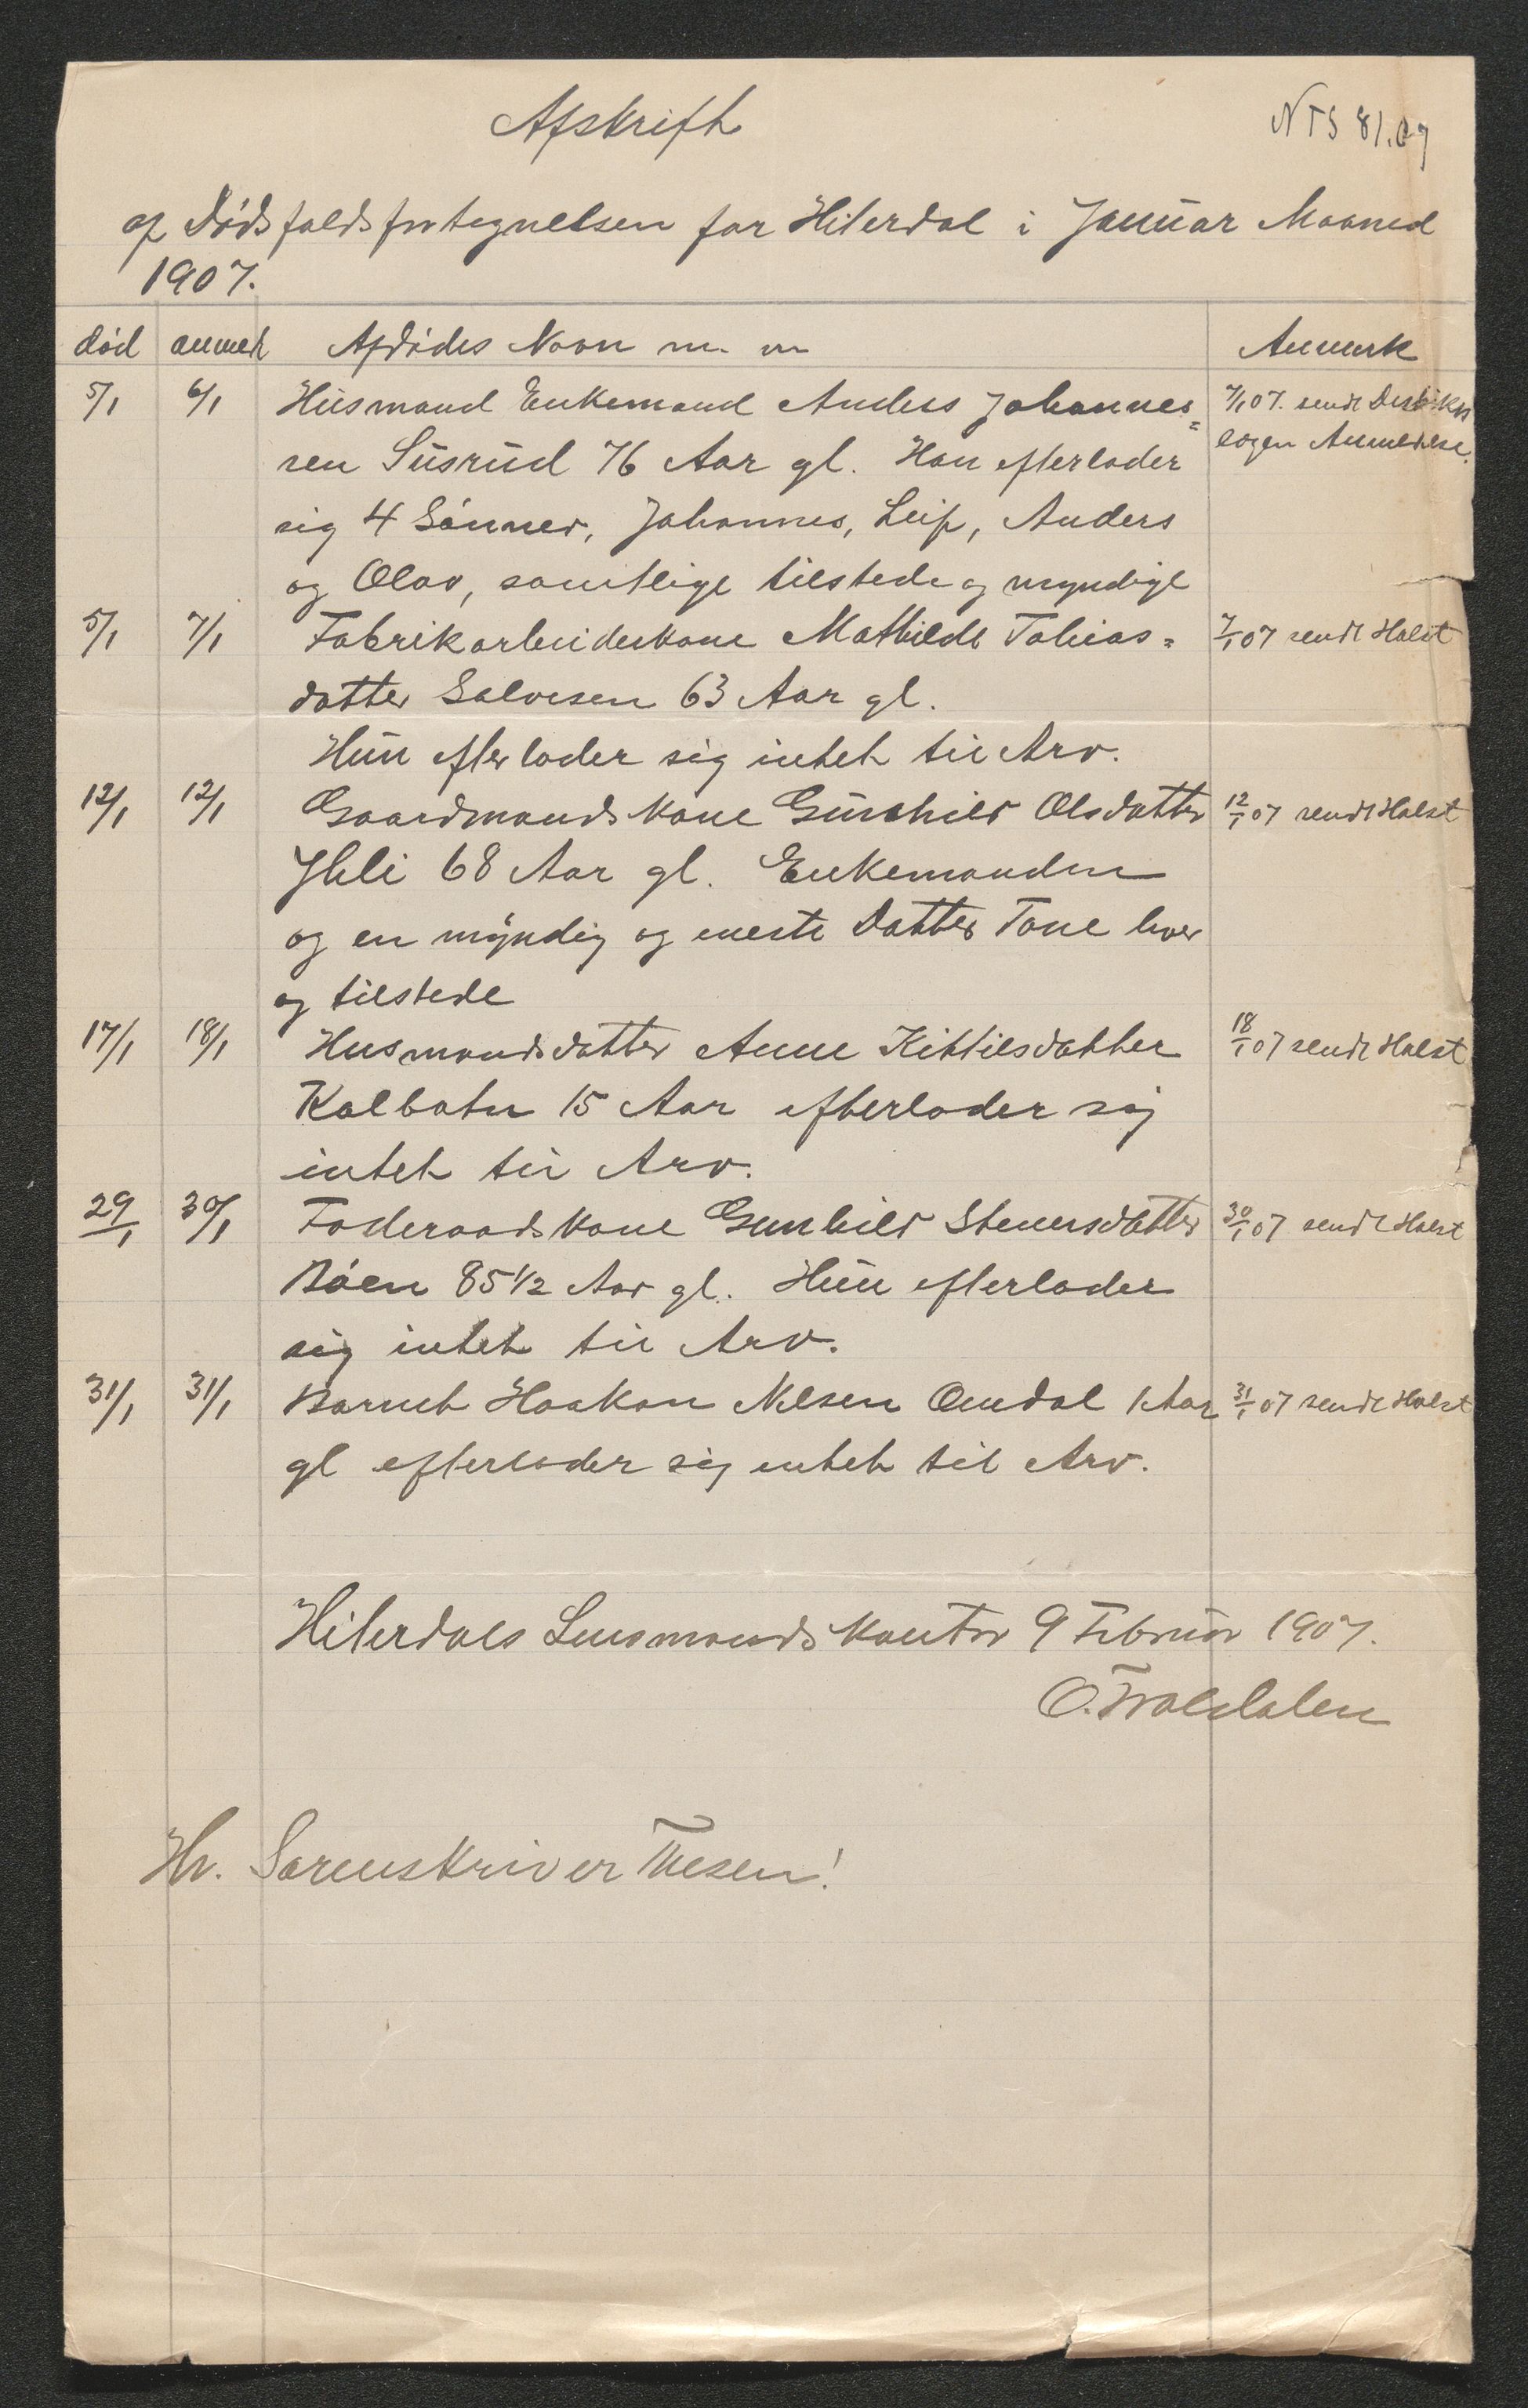 Afskrift
NTS 81.07
af Dødsfaldsfortegnelsen for Hiterdal i Januar Maaned
1907.
død anmeldt Afdødes Navn m. m Anmerk
5/1 6/1 Husmand Enkemand Anders Johannes= 7/1 07. sendt Distrikts
sen Susrud 76 Aar gl. Han efterlader lægen Anmeldelse.
sig 4 Sønner, Johannes, Leif, Anders
og Olav, samtlige tilstede og myndige
5/1 7/1 Fabrikarbeiderkone Mathilde Tobias= 7/1 07 sendt Holst
datter Salvesen 63 Aar gl.
Hun efterlader sig intet til Arv.
12/1 12/1 Gaardmandskone Gunhild Olsdatter 12/1 07 sendt Holst
Ihli 68 Aar gl. Enkemanden
og en myndig og eneste Datter Tone lever
og tilstede
17/1 18/1 Husmandsdatter Anne Kittilsdatter 18/1 07 sendt Holst
Kalbatn 15 Aar efterlader sig
intet til Arv.
29/1 30/1 Foderaadskone Gunhild Stenersdatter 30/1 07 sendt Holst
Bøen 85 1/2 Aar gl. Hun efterlader
sig intet til Arv.
31/1 31/1 Barnet Haakon Nilsen Omdal 1 Aar 31/1 07 sendt Holst
gl efterlader sig intet til Arv.
Hiterdals Lensmandskontor 9 Februar 1907.
O. Troldalen
Hr. Sorenskriver Thesen!